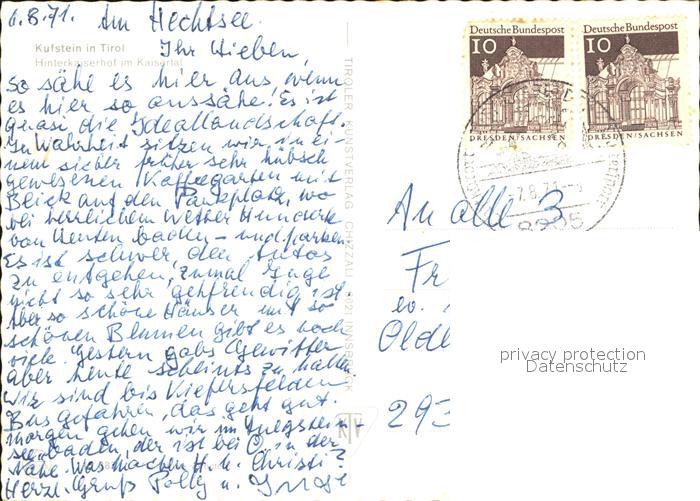 6.8.71. Am Hechtsee.
Kufstein in Tirol
Hinterkaiserhof im Kaisertal
Ihr Lieben,
so sähe es hier aus, wenn
es hier so aussähe! Es ist
quasi die Ideallandschaft.
In Wahrheit sitzen wir in ei-
nem sicher früher sehr hübsch
gewesenen Kaffeegarten mit
Blick auf den Parkplatz, wo
bei herrlichem Wetter Hunderte
von Leuten baden - und parken.
Es ist schwer, den Autos
zu entgehen, zumal Inge
nicht so sehr gehfreudig ist.
Aber so schöne Häuser mit so
schönen Blumen gibt es noch
viele. Gestern gabs Gewitter
aber heute scheints zu halten.
Wir sind bis Kiefersfelden
Bus gefahren, das geht gut.
Morgen gehen wir im
baden, der ist bei O, in der
Nähe. Was machen H. u. Christi?
Herzl. Gruß Polly u. Inge
TIROLER KUNSTVERLAG CHIZZALI 6021 INNSBRUCK
Deutsche Bundespost
10
DRESDEN/SACHSEN
Deutsche Bundespost
10
DRESDEN/SACHSEN
An alle 3
Fr
ev.
Oldb
293
privacy protection
Datenschutz